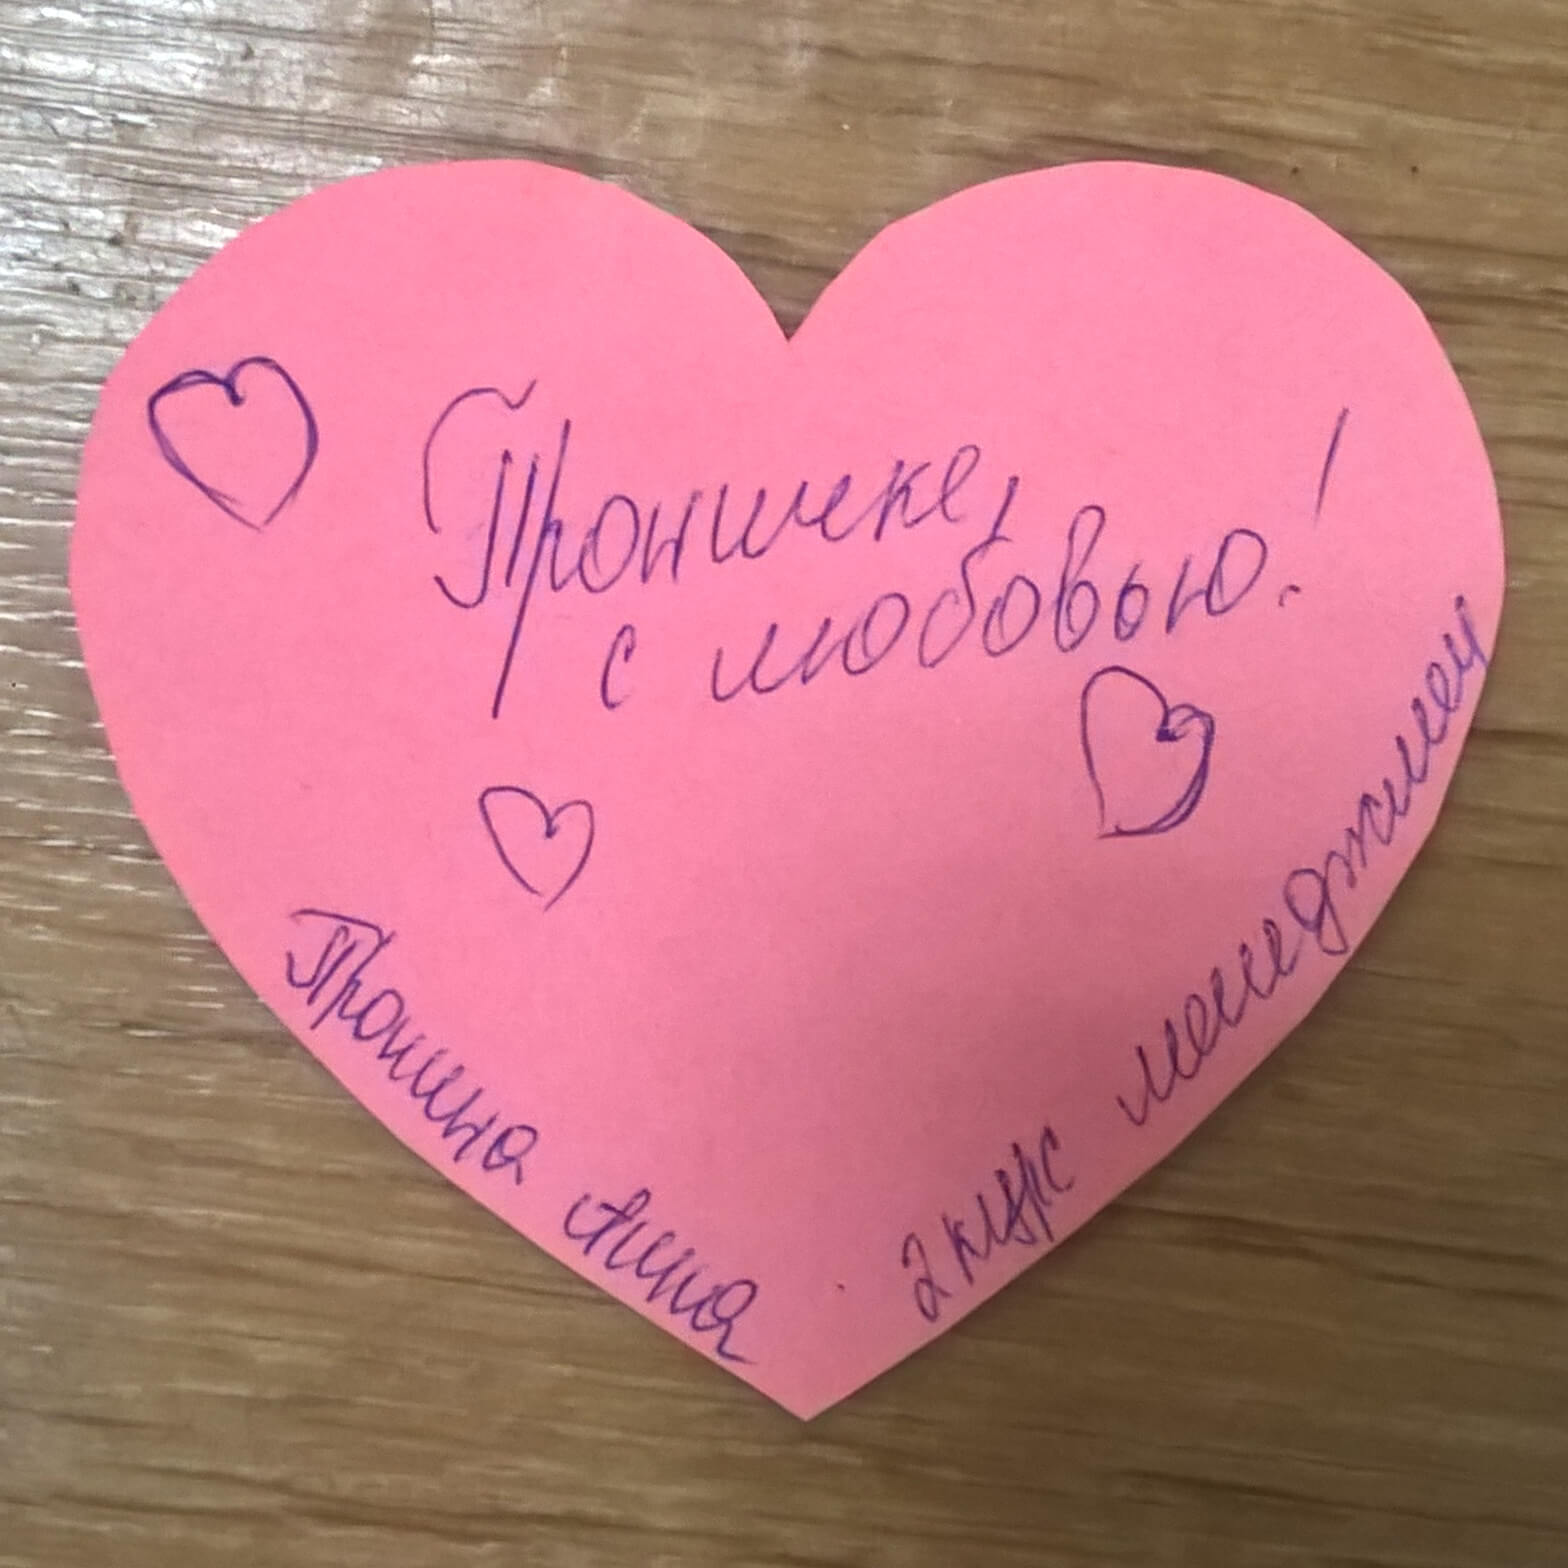 Проншеке,
с любовью!
Пронина Анна
2 курс менеджмен